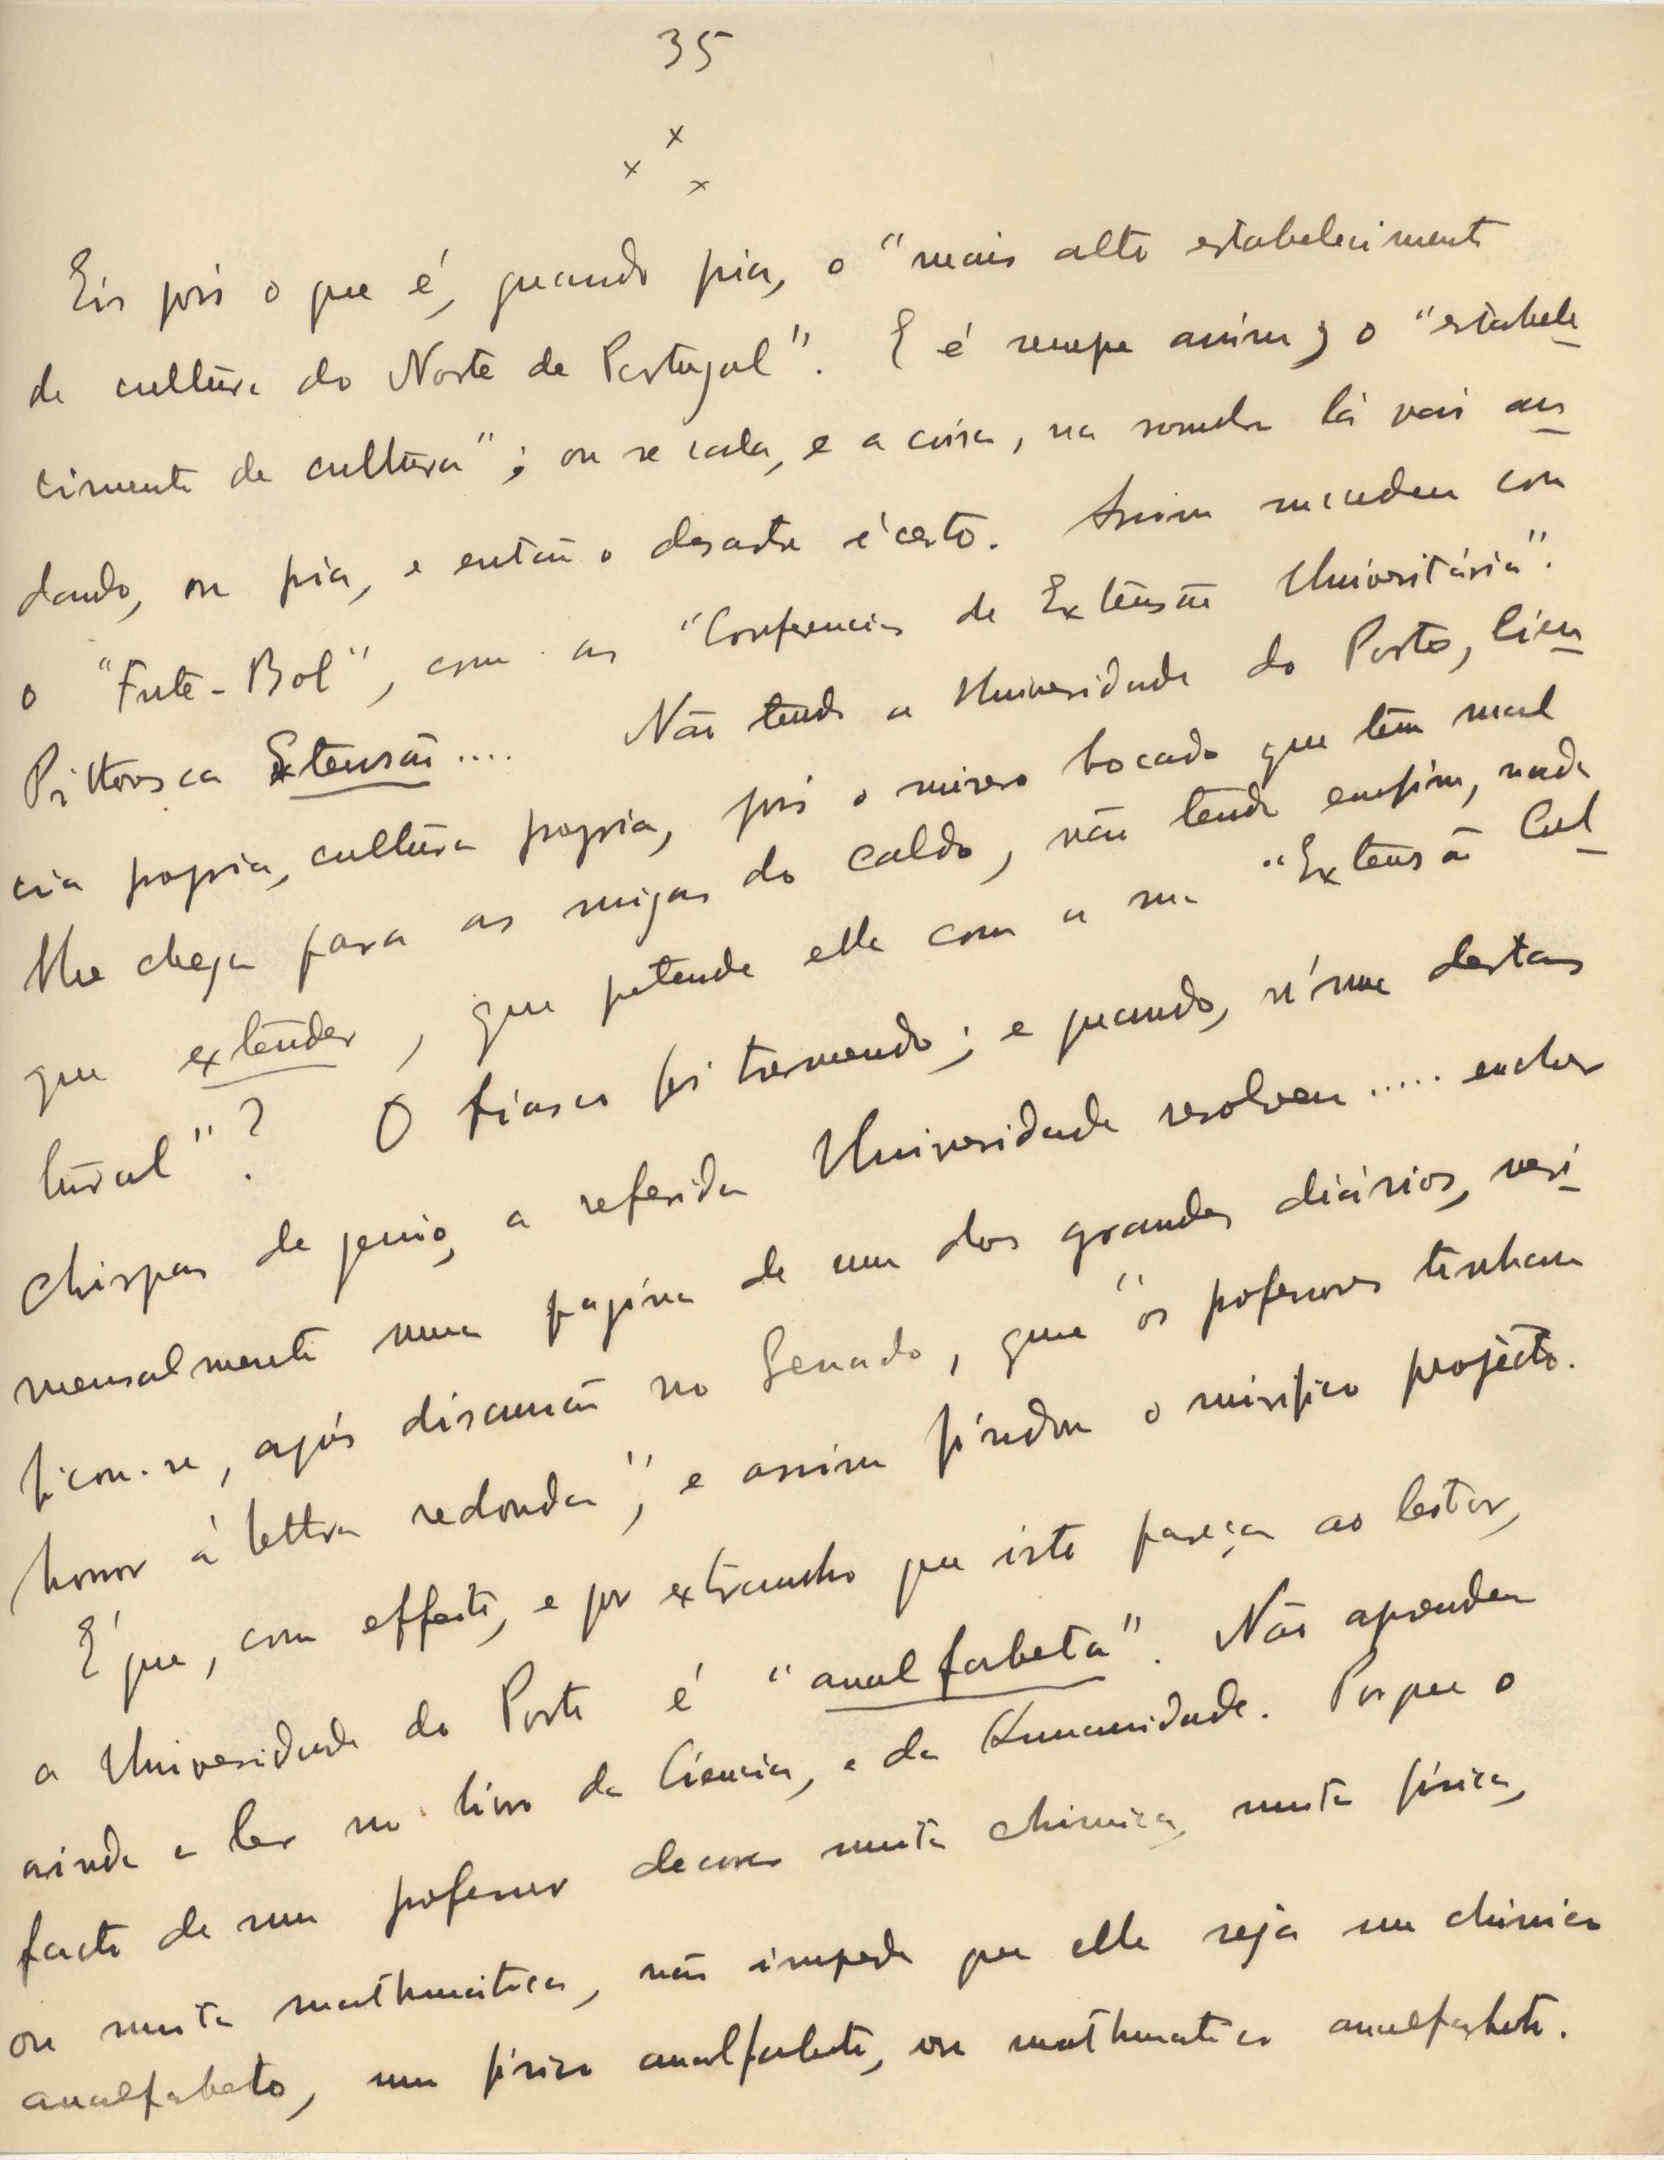 35
x
x x
Eis pois o que é, quando pia, o "mais alto estabelecimento
de cultura do Norte de Portugal". E é sempre assim; o "estabele
cimento de cultura"; ou se cala, e a coisa, na sombra lá vai an
dando, ou pia, e então o desastre é certo. Assim succedeu com
o "Fute-Bol", com as "Conferencias de Extensão Universitária".
Pittoresca Extensão.... Não tendo a Universidade do Porto, scien
cia propria, cultura propria, pois o misero bocado que tem mal
lhe chega para as migas do caldo, não tendo emfim, nada
que extender, que pretende ella com a sua "Extensão Cul
tural"? O fiasco foi tremendo; e quando, n'uma destas
chispas de genio, a referida Universidade resolveu ..... encher
mensalmente uma pagina de um dos grandes diários, veri
ficou-se, após discussão no Senado, que "os professores tinham
horror à lettra redonda", e assim findou o mirifico projecto.
É que, com effeito, e por extranho que isto pareça ao leitor,
a Universidade do Porto é "analfabeta". Não aprendeu
ainda a ler no livro da Ciencia, e da Humanidade. Porque o
facto de um professor decorar muita chimica, muita física,
ou muita mathmatica, não impede que elle seja um chimico
analfabeto, um físico analfabeto, ou mathmatico analfabeto.